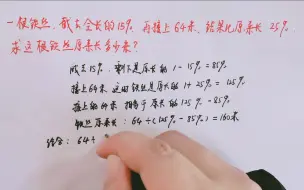 一根铁丝，截去全长的15%，再接上64米，结果比原来长25%，
求这根铁丝原来长多少米？
截去15%，剩下是原长的1-15%=85%
接上64米，这回铁丝是原长的1+25%=125%
接上的64米，相当于原长的125%-85%
铁丝原来长：64÷(125%-85%)=160米
综合：64÷